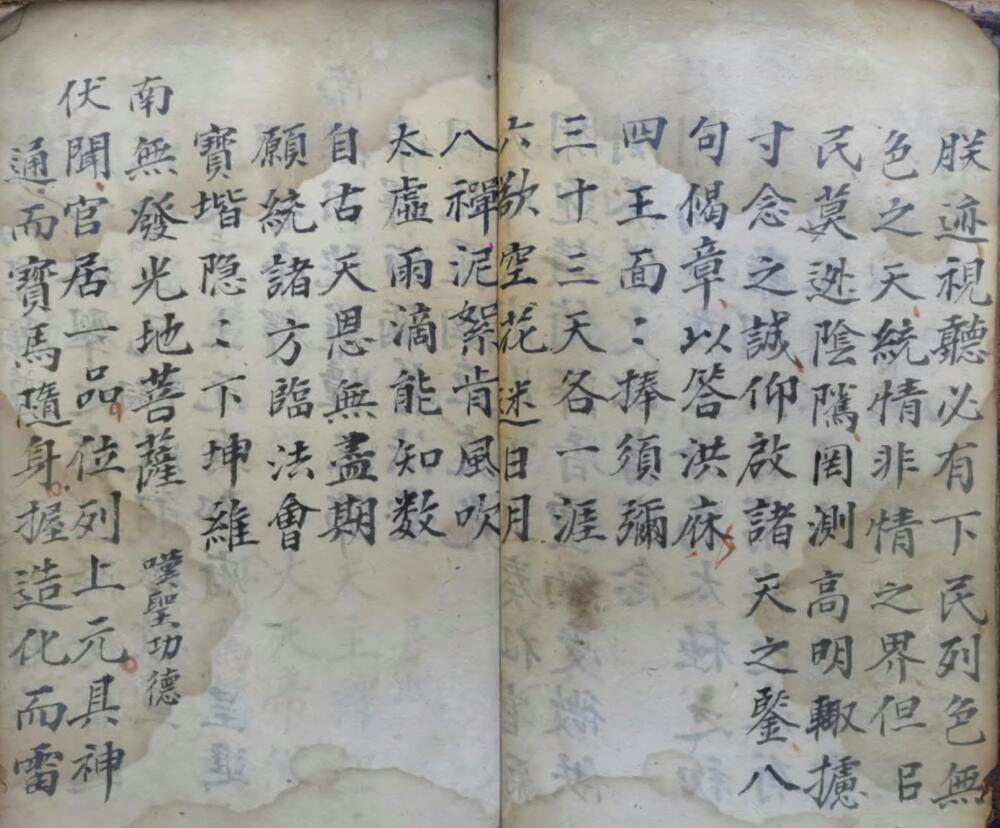 朕迹視聽必有下民列色無
色之天統情非情之界但㠯
民莫逃陰隲罔測高明輙攄
寸念之誠仰啟諸天之鑒八
句偈章以答洪庥
四王面〻捧須彌
三十三天各一涯
六欲空花迷日月
八禪泥絮肯風吹
太虛雨滴能知数
自古天恩無盡期
願統諸方臨法會
寶堦隐〻下坤維
南無發光地菩薩 嘆聖功德
伏聞官居一品位列上元具神
通而寶馬隨身握造化而雷